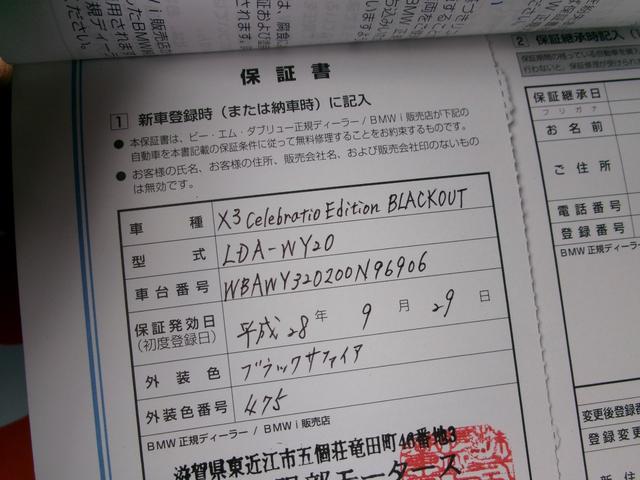 保証書
1 新車登録時（または納車時）に記入
● 本保証書は、ビー・エム・ダブリュー正規ディーラー / BMW i 販売店が下記の
自動車を本書記載の保証条件に従って無料修理することをお約束するものです。
● お客様の氏名、お客様の住所、販売会社名、および販売会社印のないもの
は無効です。
車種 X3 Celebratio Edition BLACKOUT
型式 LDA-WY20
車台番号 WBAWY320200N96906
保証発効日
(初度登録日) 平成 28 年 9 月 29 日
外装色 ブラックサファイア
外装色番号 475
BMW 正規ディーラー / BMW i 販売店
滋賀県東近江市五個荘竜田町46番地3
モータース
2 保証継承時記入
保証継承日
フリガナ
お名前
ご住所
電話番号
登録番号
BMW 正規ディーラー
変更後登録番
登録変更
住